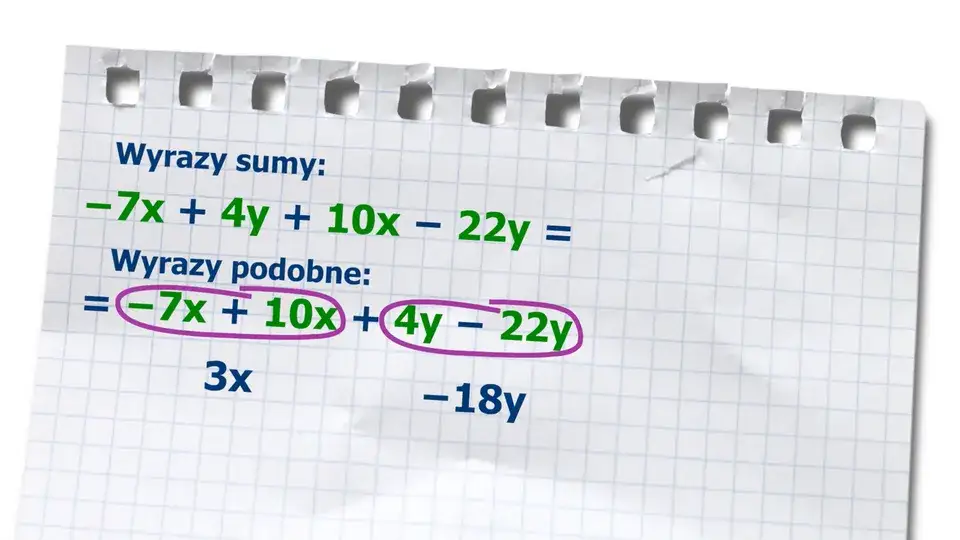 Wyrazy sumy:
−7x + 4y + 10x − 22y =
Wyrazy podobne:
= −7x + 10x + 4y − 22y
3x −18y